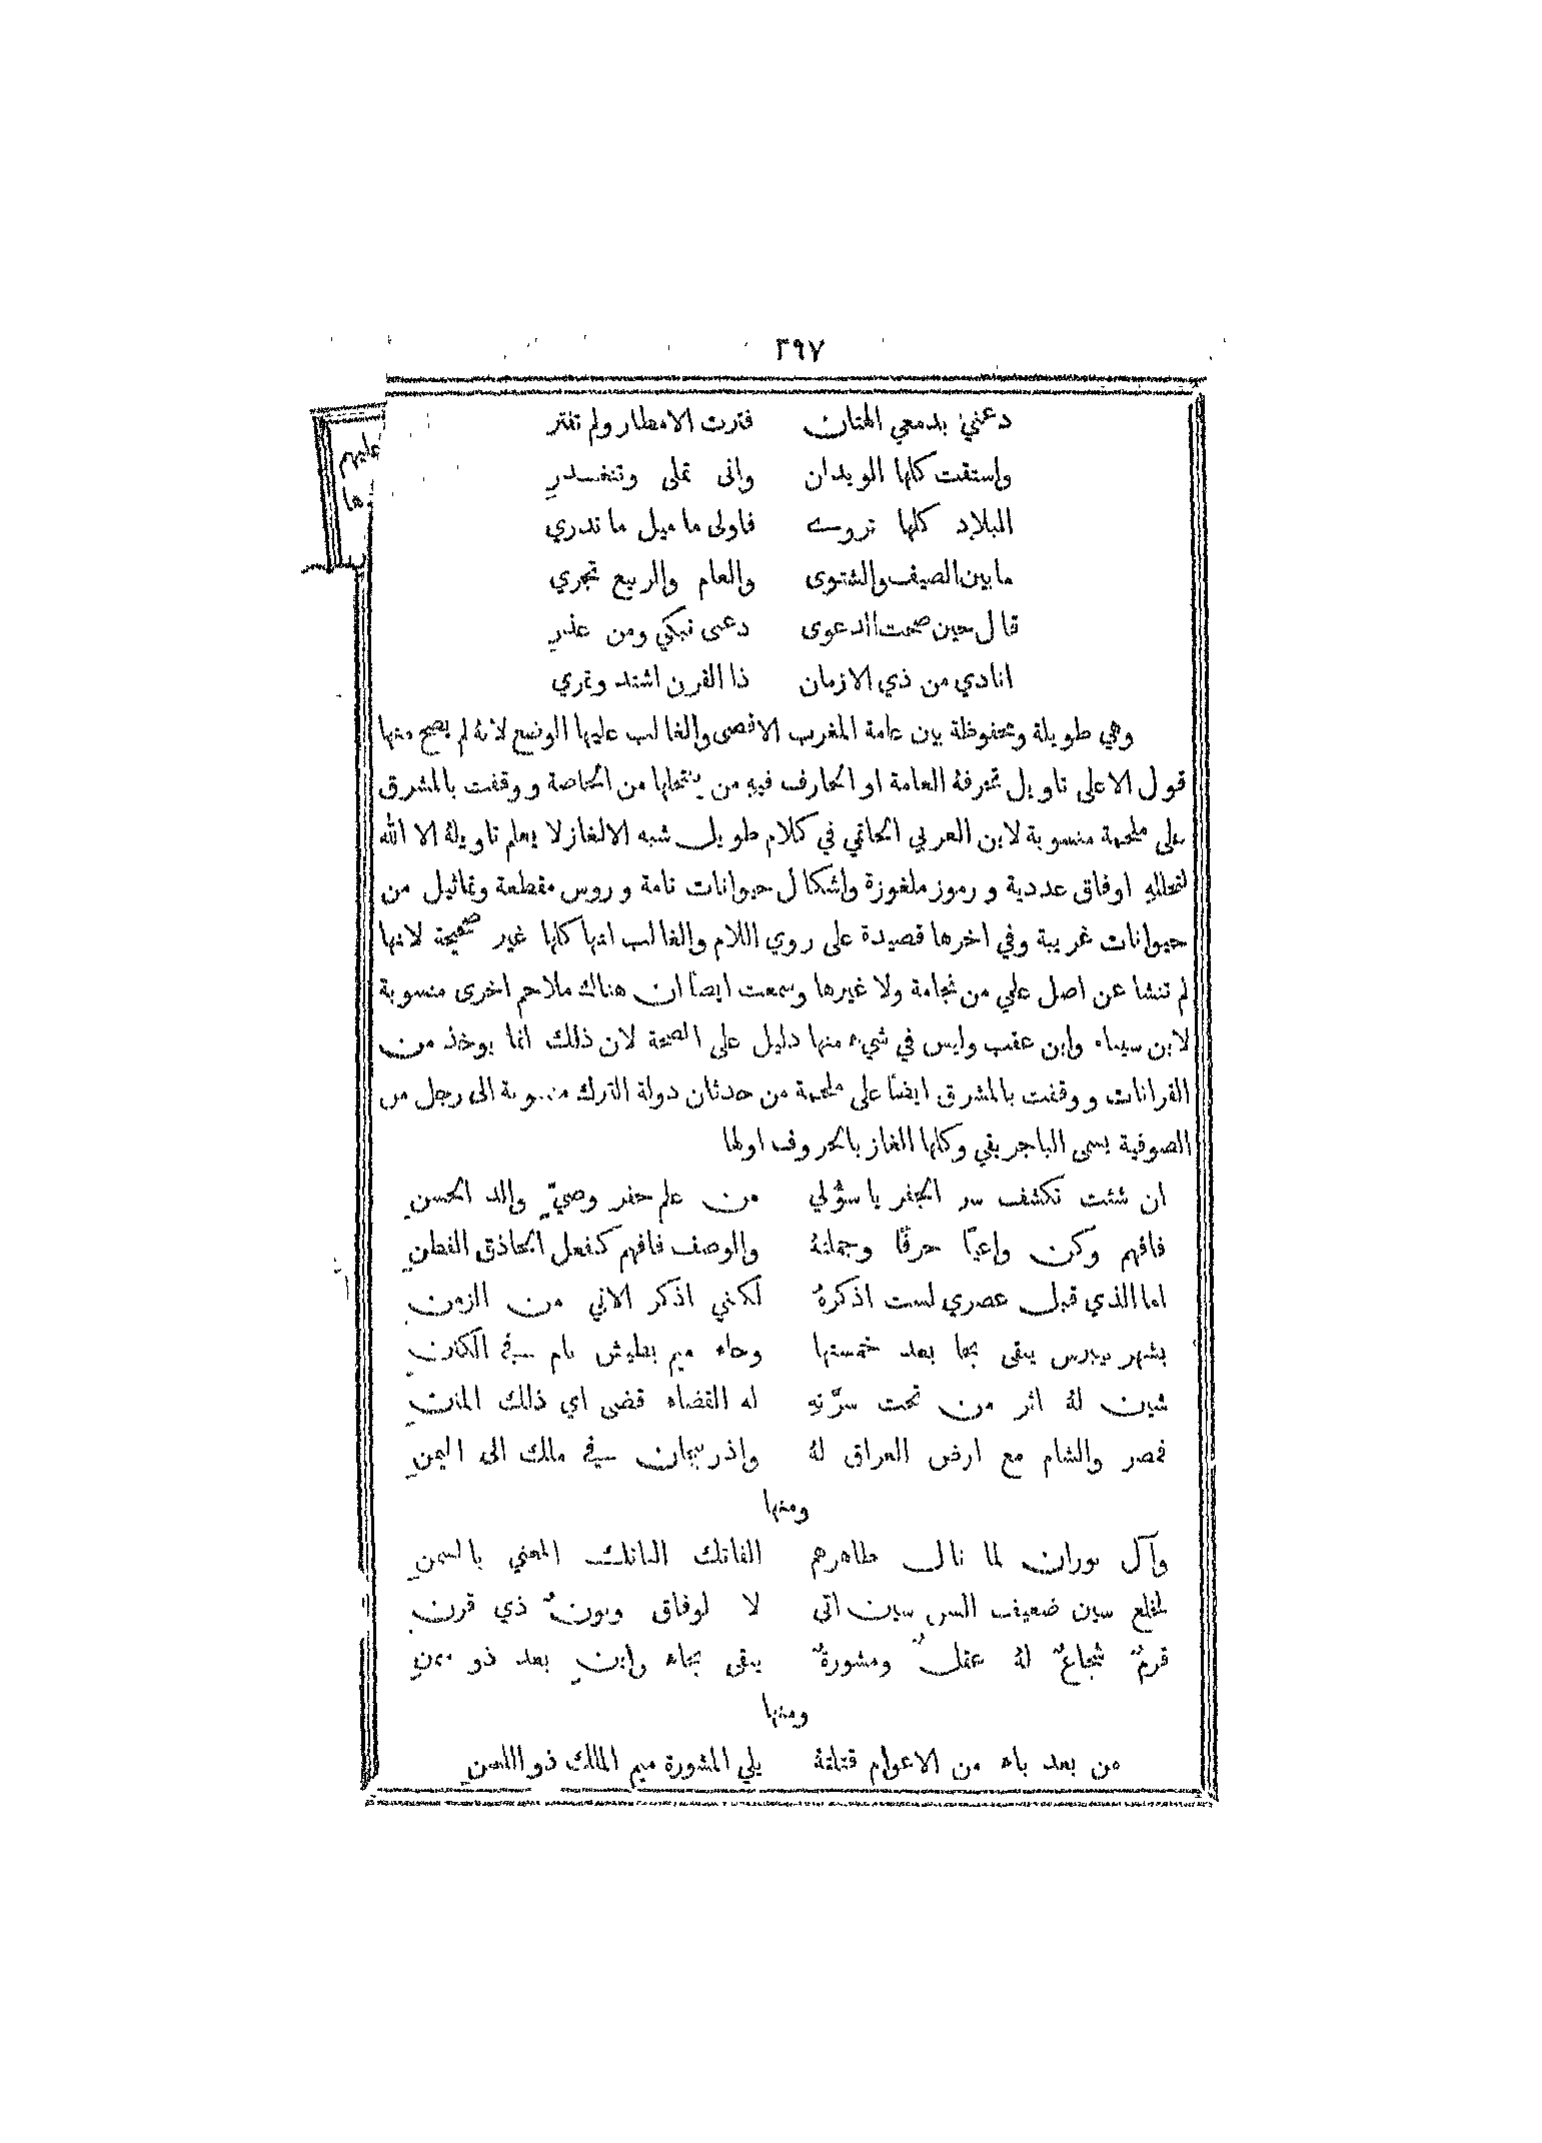 ٣٩٧
دعني بدمعي الهتان فترت الامطار ولم تفتر
واستقت كلها الويدان وانى تملى وتنغدر
البلاد كلها تروى فاولى ما ميل ما تدري
ما بين الصيف والشتوى والعام والربيع تجري
قال حين صحت الدعوى دعى نبكي ومن عذر
انادي من ذي الازمان ذا القرن اشتد وتمري
وهي طويلة ومحفوظة بين عامة المغرب الاقصى والغالب عليها الوضع لانهُ لم يصح منها
قول الا على تاويل تحرفهُ العامة او الحارف فيهِ من ينتحلها من الخاصة ووقفت بالمشرق
على ملحمة منسوبة لابن العربي الحاتمي في كلام طويل شبه الالغاز لا يعلم تاويلهُ الا الله
لتخللهِ اوفاق عددية ورموز ملغوزة واشكال حيوانات تامة وروس مقطعة وتماثيل من
حيوانات غريبة وفي اخرها قصيدة على روي اللام والغالب انها كلها غير صحيحة لانها
لم تنشا عن اصل علمي من نجامة ولا غيرها وسمعت ايضاً ان هناك ملاحم اخرى منسوبة
لابن سيناء وابن عقب وليس في شيء منها دليل على الصحة لان ذلك انما يوخذ من
القرانات ووقفت بالمشرق ايضاً على ملحمة من حدثان دولة الترك منسوبة الى رجل من
الصوفية يسمى الباجريقي وكلها الغاز بالحروف اولها
ان شئت تكشف سر الجفر يا سؤلي من علم جفر وصيّ والد الحسنِ
فافهم وكن واعياً حرفاً وجملتهُ والوصف فافهم كفعل الحاذق الفطنِ
اما الذي قبل عصري لست اذكرهُ لكنني اذكر الاتي من الزمنِ
بشهر بيبرس يبقى بحا بعد خمستها وحاء ميم بطيش نام في الكننِ
شين لهُ اثر من تحت سرّتهِ له القضاء قضى اي ذلك المننِ
فمصر والشام مع ارض العراق لهُ واذربيجان في ملك الى اليمنِ
ومنها
وآل بوران لما نال طاهرهم الفاتك الباتك المعني بالسمنِ
لخلع سين ضعيف السن سين اتى لا لوفاق ونونٌ ذي قرنِ
قرمٌ شجاعٌ لهُ عقلٌ ومشورةٌ يبقى بحاء واينٍ بعد ذو سمنِ
ومنها
من بعد باء من الاعوام قتلتهُ يلي المشورة ميم الملك ذو اللسنِ
عليهم
ها